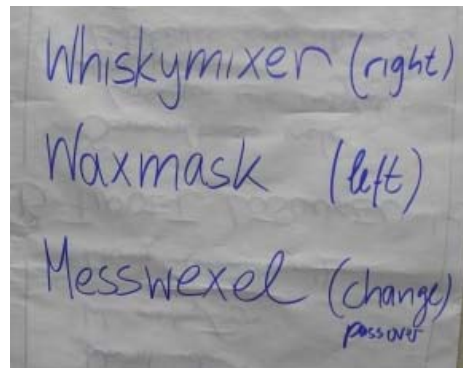 Whiskymixer (right)
Waxmask (left)
Messwexel (change)
passover